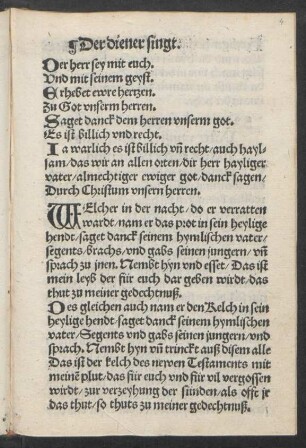 ¶Der diener singt.
Der herr sey mit euch.
Vnd mit seinem geyst.
Erhebet ewre hertzen.
Zu Got vnserm herren.
Saget danck dem herren vnserm got.
Es ist billich vnd recht.
Ja warlich es ist billich vñ recht/auch hayl-
sam/das wir an allen orten/dir herr hayliger
vater/almechtiger ewiger got/danck sagen/
Durch Christum vnsern herren.
WElcher in der nacht/do er verratten
wardt/nam er das prot in sein heylige
hendt/saget danck seinem hymlischen vater/
segents/brachs/vnd gabs seinen jungern/vñ
sprach zu jnen. Nembt hyn vnd esset/Das ist
mein leyb der für euch dar geben wirdt/das
thut zu meiner gedechtnuß.
Des gleichen auch nam er den Kelch in sein
heylige hendt/saget danck seinem hymlischen
vater/Segents vnd gabs seinen jungern/vnd
sprach. Nembt hyn vñ trinckt auß disem alle
Das ist der kelch des newen Testaments mit
meinē plut/das für euch vnd für vil vergossen
wirdt/zur verzeyhung der sünden/als offt je
das thut/so thuts zu meiner gedechtnuß.